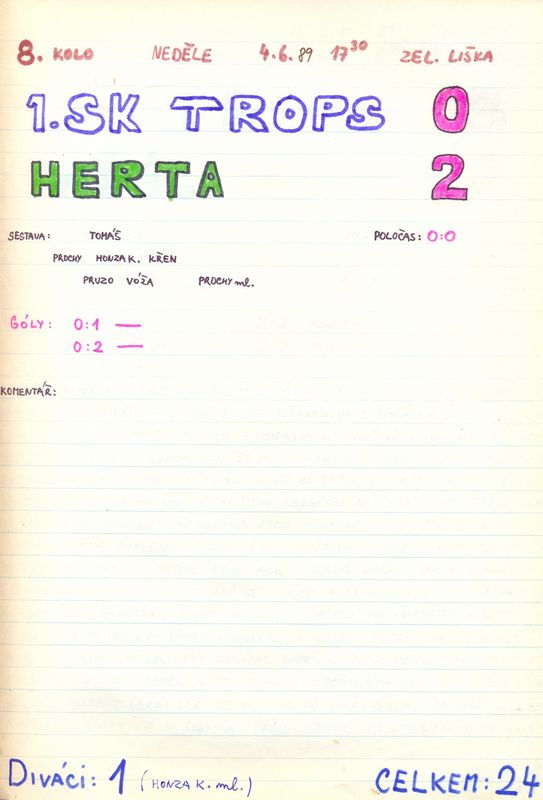 8. KOLO NEDĚLE 4.6.89 17³⁰ ZEL. LIŠKA
1.SK TROPS 0
HERTA 2
SESTAVA: TOMÁŠ POLOČAS: 0:0
PROCHY HONZA K. KŘEN
PRUZO VÓŽA PROCHY ml.
GÓLY: 0:1 —
0:2 —
KOMENTÁŘ:
DIVÁCI: 1 (HONZA K. ml.) CELKEM: 24